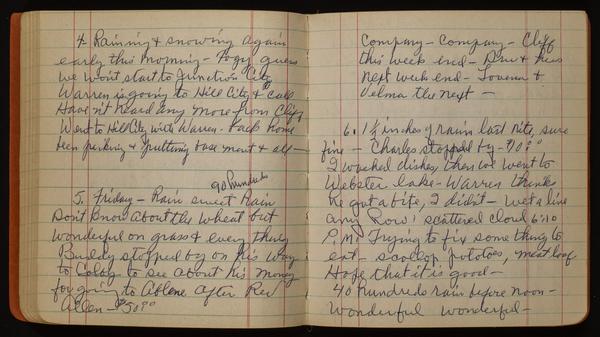 4. Raining & snowing again
early this morning - Foggy guess
we won't start to Junction City
Warren is going to Hill City & call
Haven't heard any more from Cliff
Went to Hill City with Warren. Back home
been picking & puttting base ment & all -
90 hundreds
5. Friday - Rain sweet Rain
Don't know About the wheat but
wonderful on grass & every thing
Buddy stopped by on his way
to Colby to see about his money
for going to Abilene After Red
Allen - $50.00
Company - Company - Cliff
this week end -
next week end - Lovena &
Velma the next -
6. 1 1/4 inches of rain last nite, sure
fine - Charles stopped by - 70°
I washed dishes, then we went to
Webster lake - Warren thinks
he got a bite, I didn't - wet a line
any Row! scattered cloud 6:10
P.M. Trying to fix some thing to
eat - scallop potatoes, meat loaf
Hope that it is good -
40 hundreds rain before noon -
Wonderful wonderful -